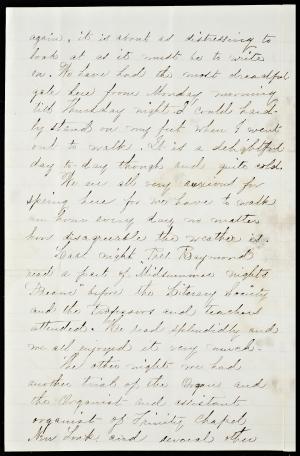 again, it is about as distressing to
look at as it must be to write
on. We have had the most dreadful
gale here from Monday morning
till Thursday night I could hard-
ly stand on my feet when I went
out to walk. It is a delightful
day to-day though and quite cold.
We are all very anxious for
spring here for we have to walk
an hour every day no matter
how disagreeable the weather is.
Last night Prel Raymond
read a part of Midsummer nights
"Dream" before the Literary Society
and the Professors and teachers
attended. He read splendidly and
we all enjoyed it very much.
The other night we had
another trial of the Organ and
the Organist and assistant
organist of Trinity Chapel
New York and several other